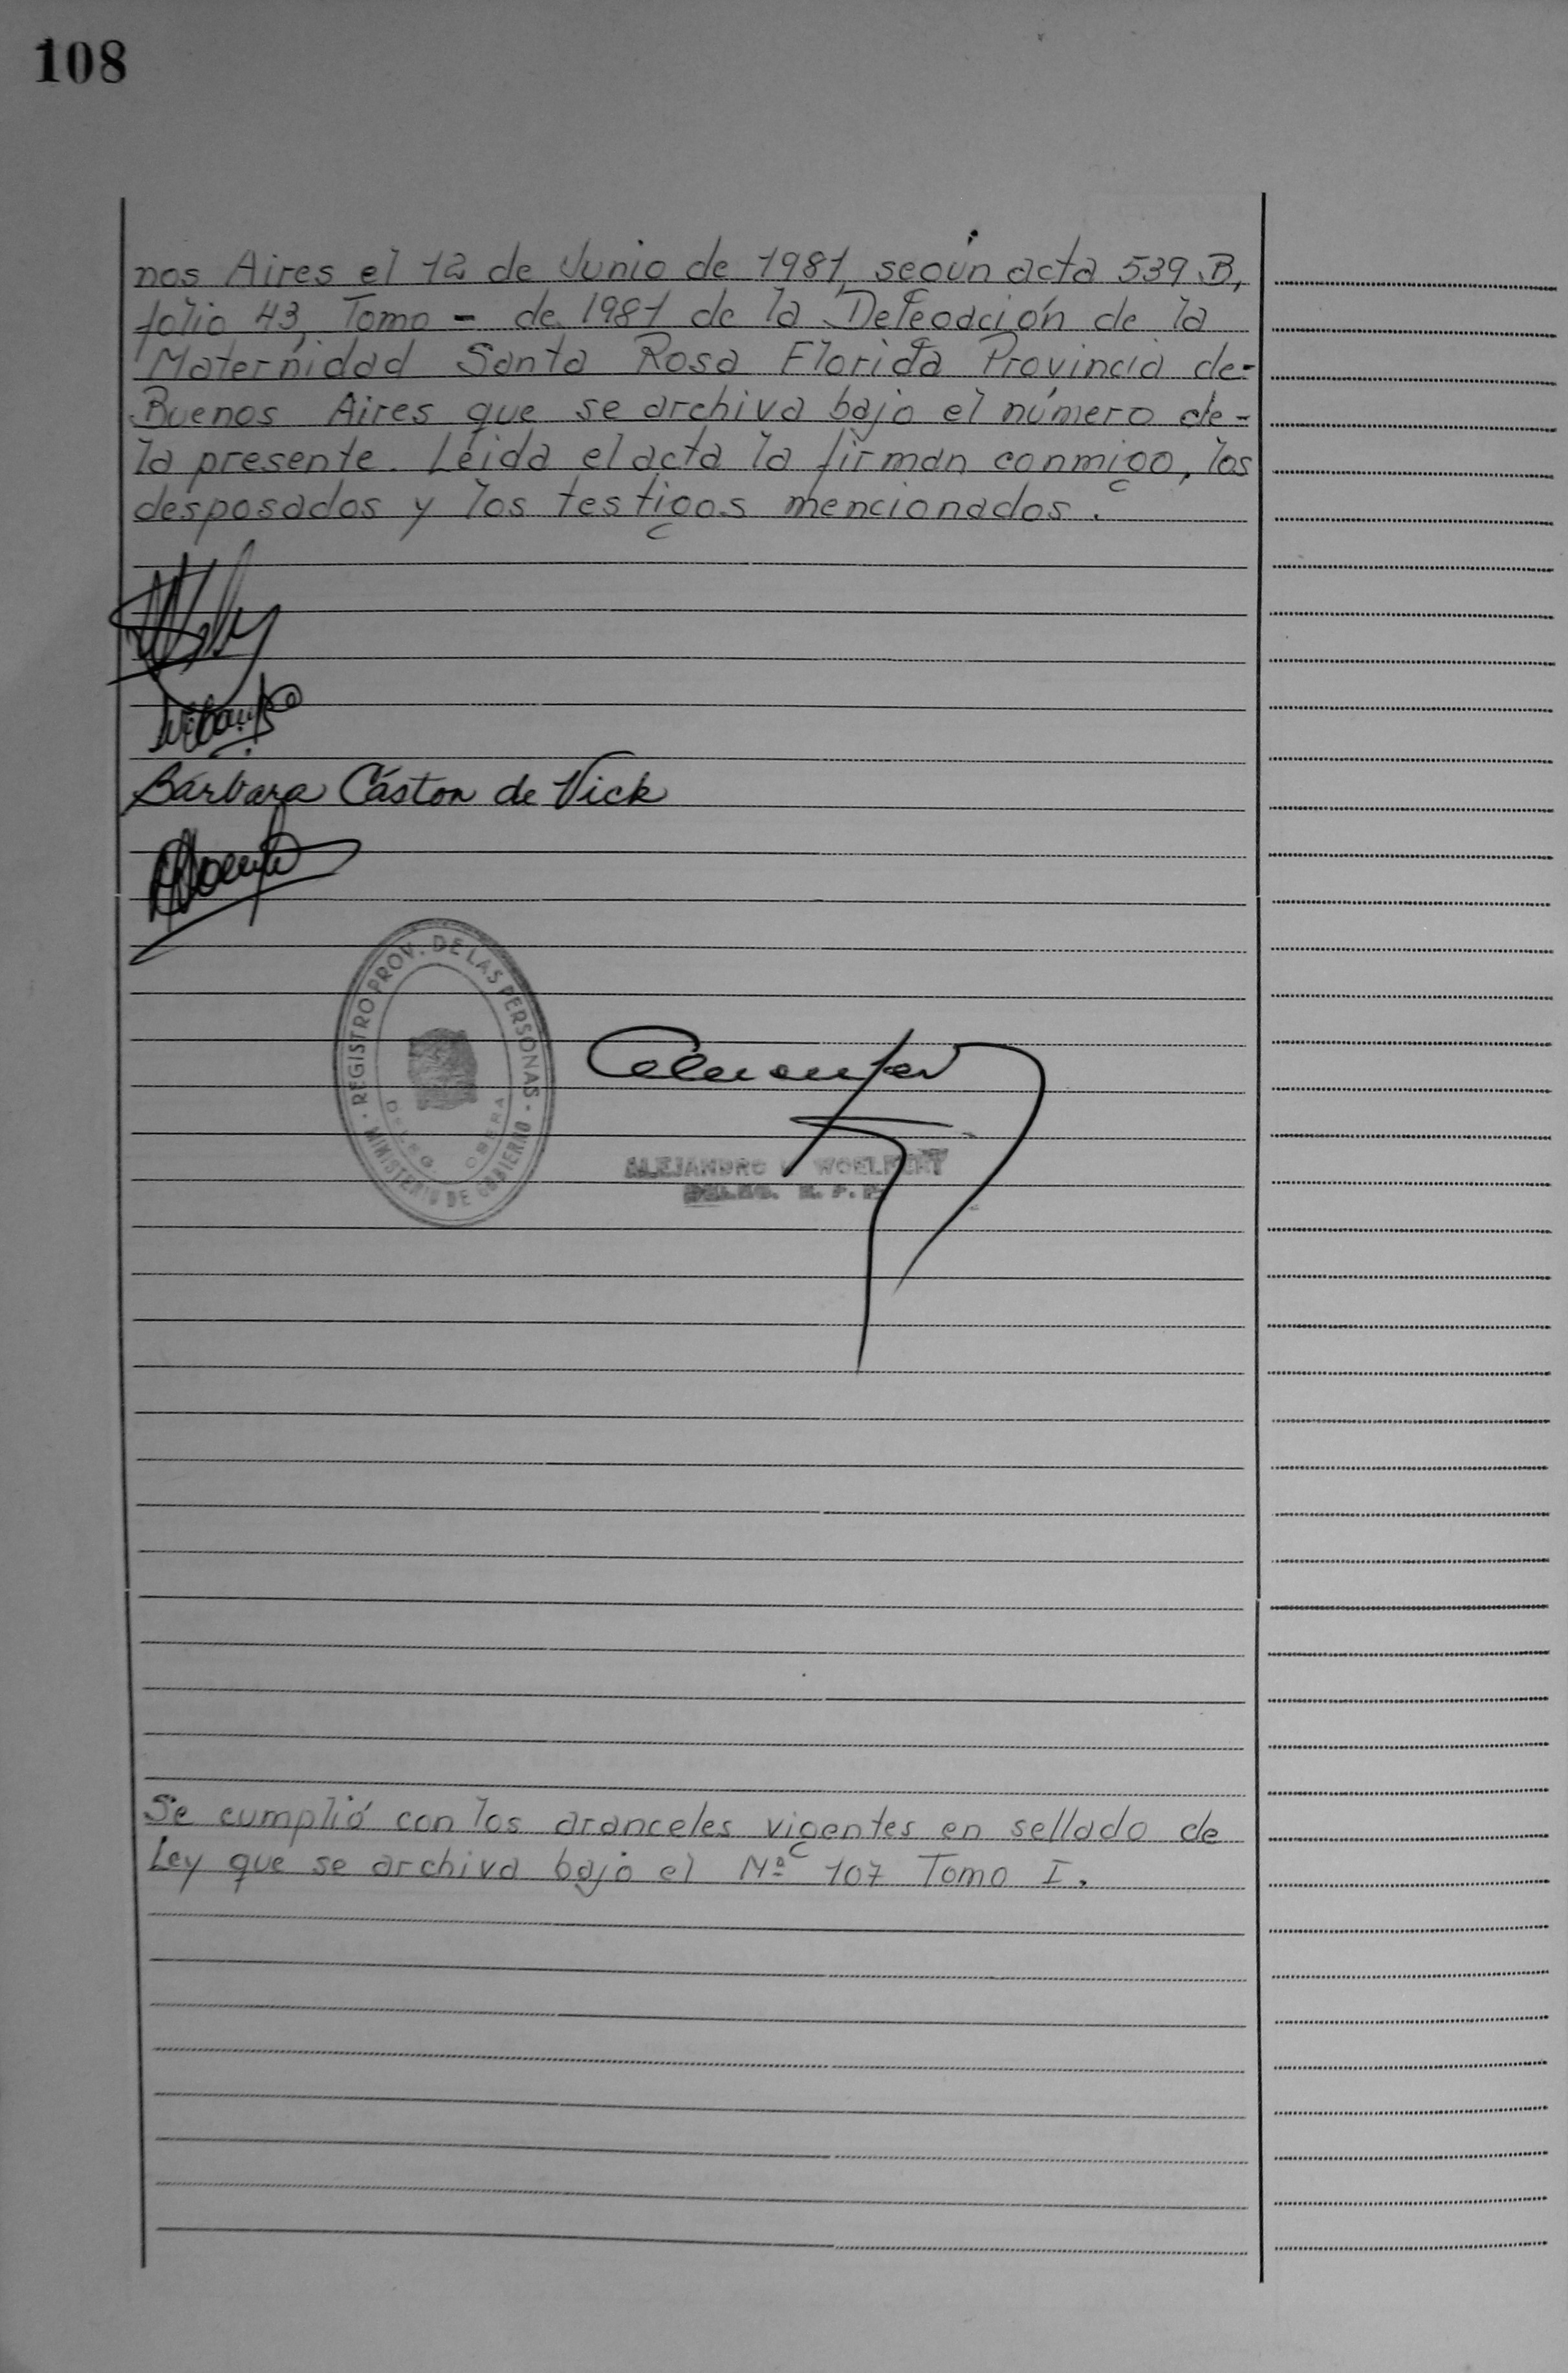 108
nos Aires el 12 de Junio de 1981, según acta 539 B,
folio 43, Tomo - de 1981 de la Delegación de la
Maternidad Santa Rosa Florida Provincia de-
Buenos Aires que se archiva bajo el número de-
la presente. Léida el acta la firman conmigo, los
desposados y los testigos mencionados.
Bárbara Cáston de Vick
REGISTRO PROV. DE LAS PERSONAS
DELEG. OBERA
MINISTERIO DE GOBIERNO
ALEJANDRO WOELFERT
DELEG. R. P. P.
Se cumplió con los aranceles vigentes en sellado de
Ley que se archiva bajo el Nº 107 Tomo I.